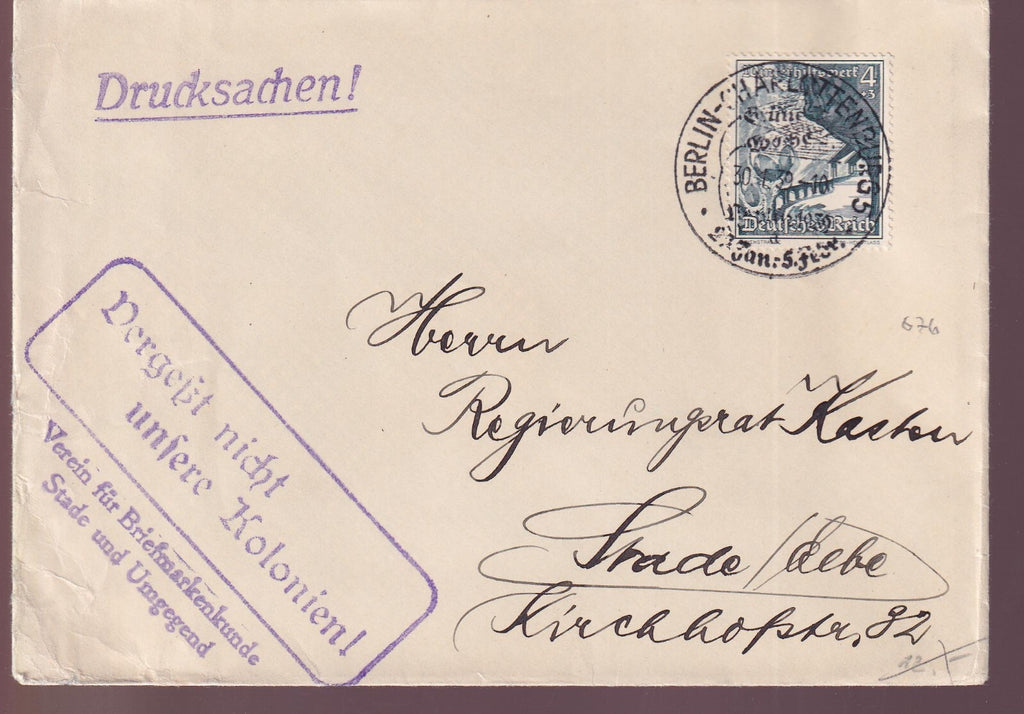 Drucksachen!
Winterhilfswerk 4
+3
BERLIN-CHARLOTTENBURG 5
Grüne
Woche
30.1.39
27. Jan.-5. Febr.
Deutsches Reich
676
Herrn
Regierungsrat Kasten
Stade/Elbe
Kirchhofstr. 32
12.-
Vergeßt nicht
unsere Kolonien!
Verein für Briefmarkenkunde
Stade und Umgegend